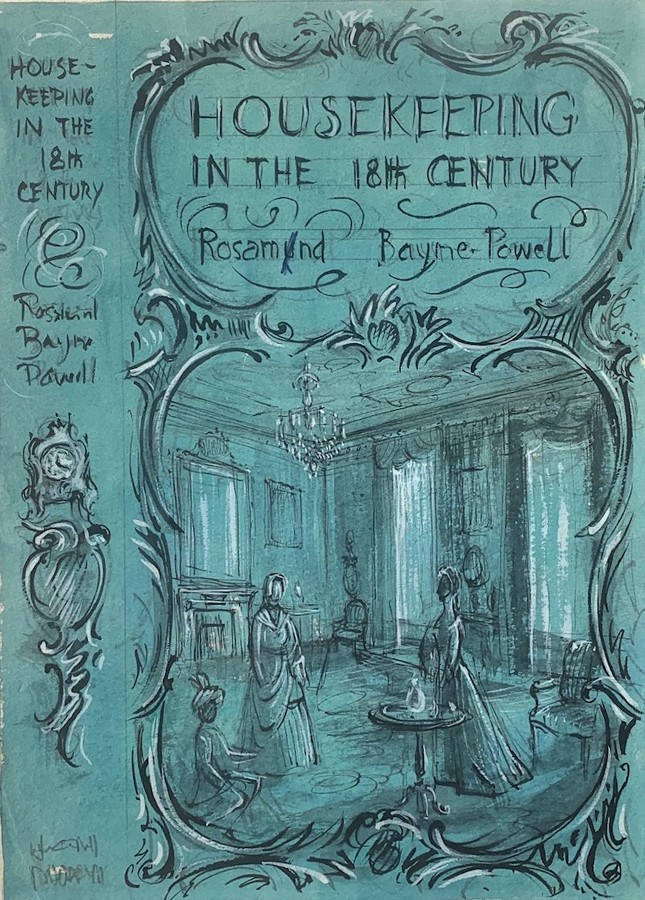 HOUSE-
KEEPING
IN THE
18th
CENTURY
Bayne
Powell
HOUSEKEEPING
IN THE 18th CENTURY
Rosamund Bayne-Powell